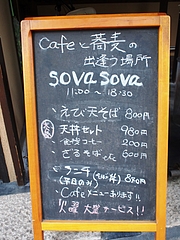 Cafeと蕎麦の
出逢う場所
sova sova
11:00 ~ 18:30
・えび天そば 800円
・天丼セット 980円
・食後コーヒー 200円
・ざるそば 600円
・ランチ 850円
(平日のみ)
・Cafeメニューあります!!
火曜 大盛サービス!!